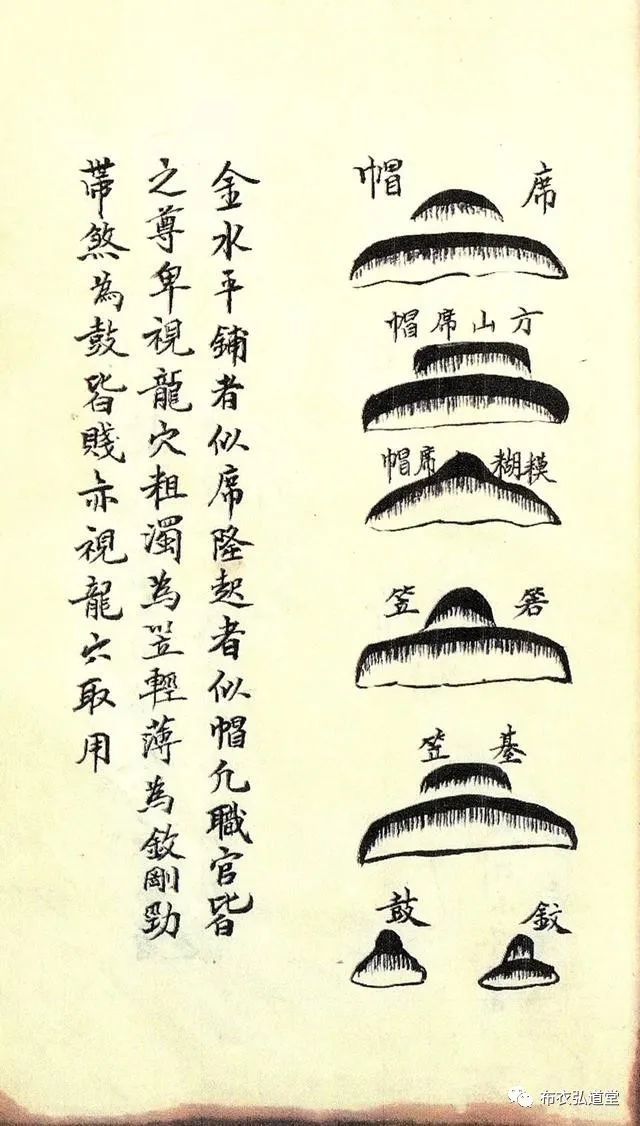 席帽
方山席帽
糢糊席帽
箬笠
基笠
鈸
鼓
金水平鋪者似席隆起者似帽凡職官皆
之尊卑視龍穴粗濁為笠輕薄為鈸剛勁
帶煞為鼓皆賤亦視龍穴取用
布衣弘道堂